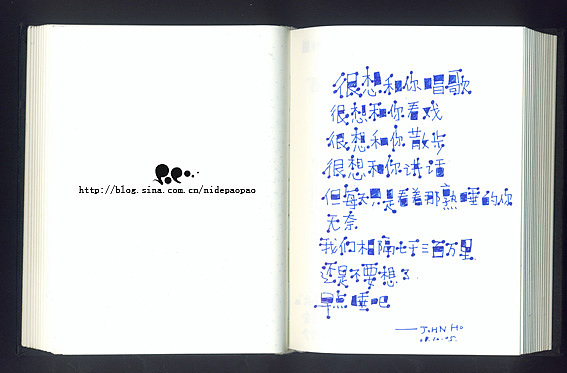 http://blog.sina.com.cn/nidepaopao
很想和你唱歌
很想和你看戏
很想和你散步
很想和你讲话
但每天只是看着那熟睡的你
无奈
我们相隔七千三百万里
还是不要想了
早点睡吧
—— JOHN HO
08.10.05.